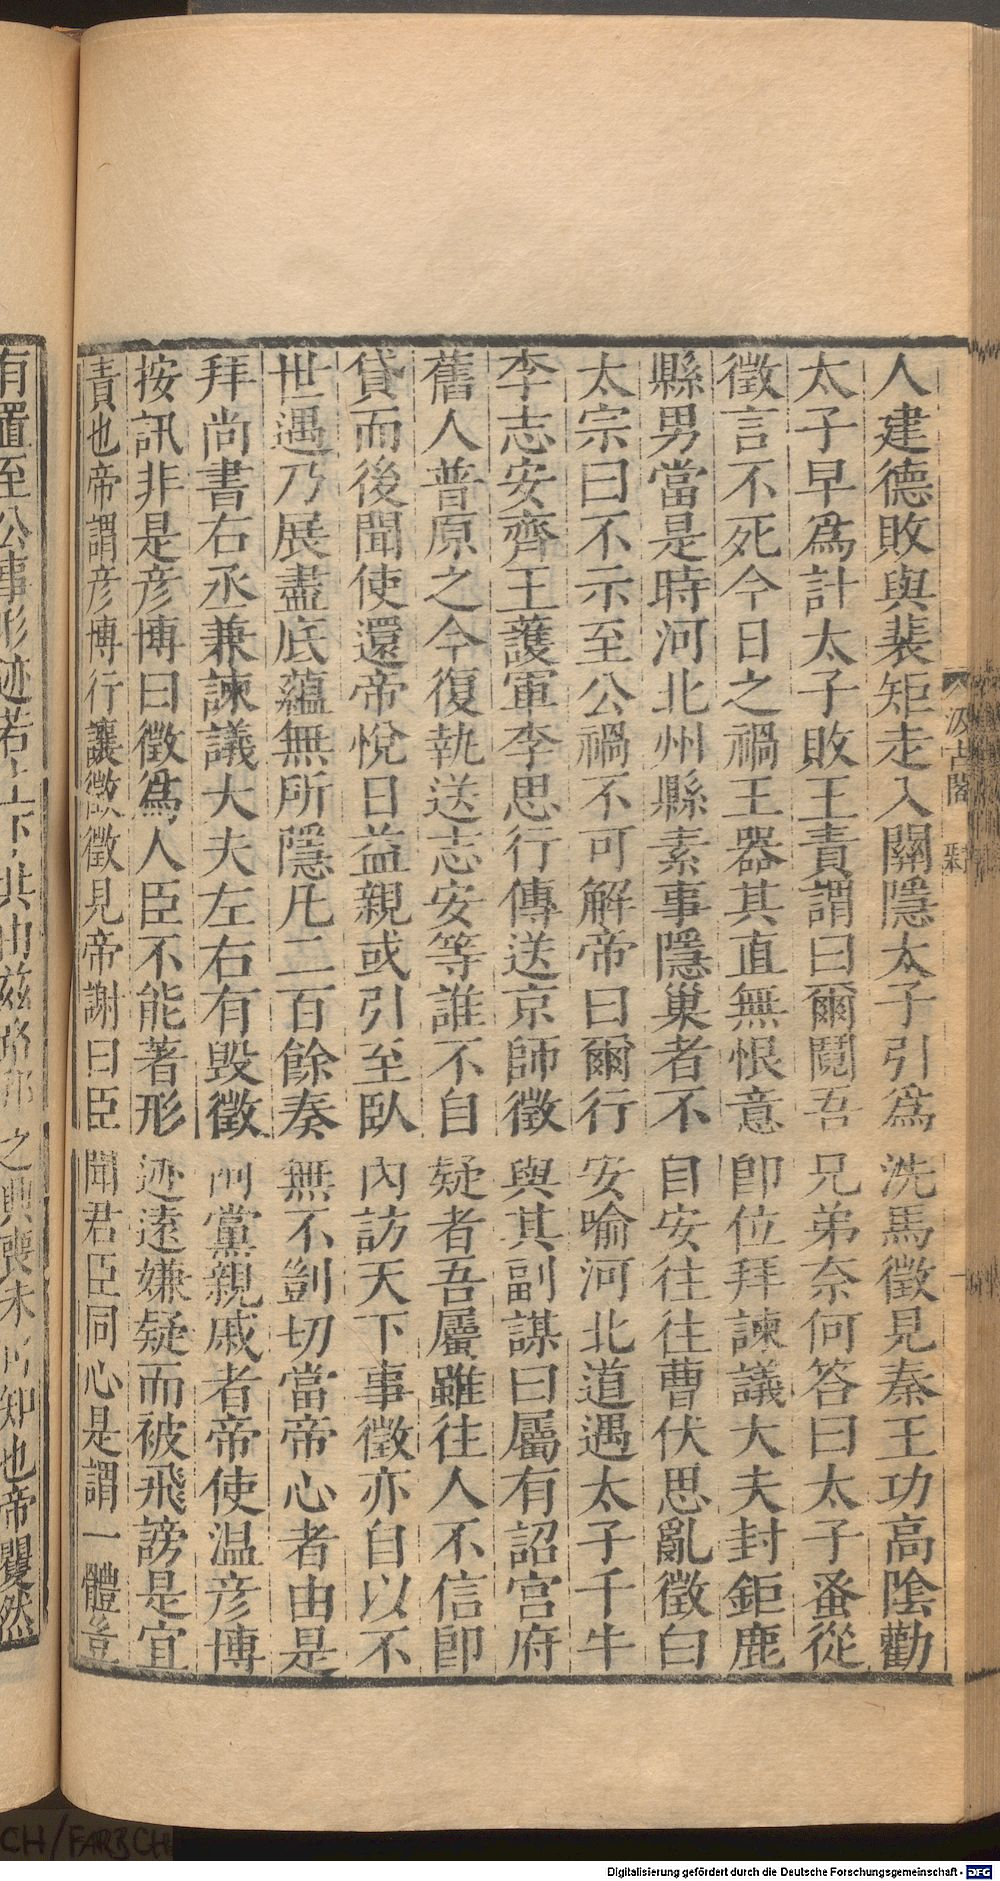 人建德敗與裴矩走入關隱太子引爲洗馬徵見秦王功高陰勸
太子早爲計太子敗王責謂曰爾鬩吾兄弟奈何答曰太子蚤從
徵言不死今日之禍王器其直無恨意卽位拜諫議大夫封鉅鹿
縣男當是時河北州縣素事隱巢者不自安往往曹伏思亂徵白
太宗曰不示至公禍不可解帝曰爾行安喻河北道遇太子千牛
李志安齊王護軍李思行傳送京師徵與其副謀曰屬有詔宮府
舊人普原之今復執送志安等誰不自疑者吾屬雖往人不信卽
貸而後聞使還帝悅日益親或引至臥內訪天下事徵亦自以不
世遇乃展盡底蘊無所隱凡二百餘奏無不剴切當帝心者由是
拜尚書右丞兼諫議大夫左右有毀徵阿黨親戚者帝使温彦博
按訊非是彦博曰徵爲人臣不能著形迹遠嫌疑而被飛謗是宜
責也帝謂彦博行讓徵徵見帝謝曰臣聞君臣同心是謂一體豈
有置至公事形迹若上下共由兹路邦之興喪未可知也帝矍然
汲古閣
CH/FARBCH
Digitalisierung gefördert durch die Deutsche Forschungsgemeinschaft - DFG